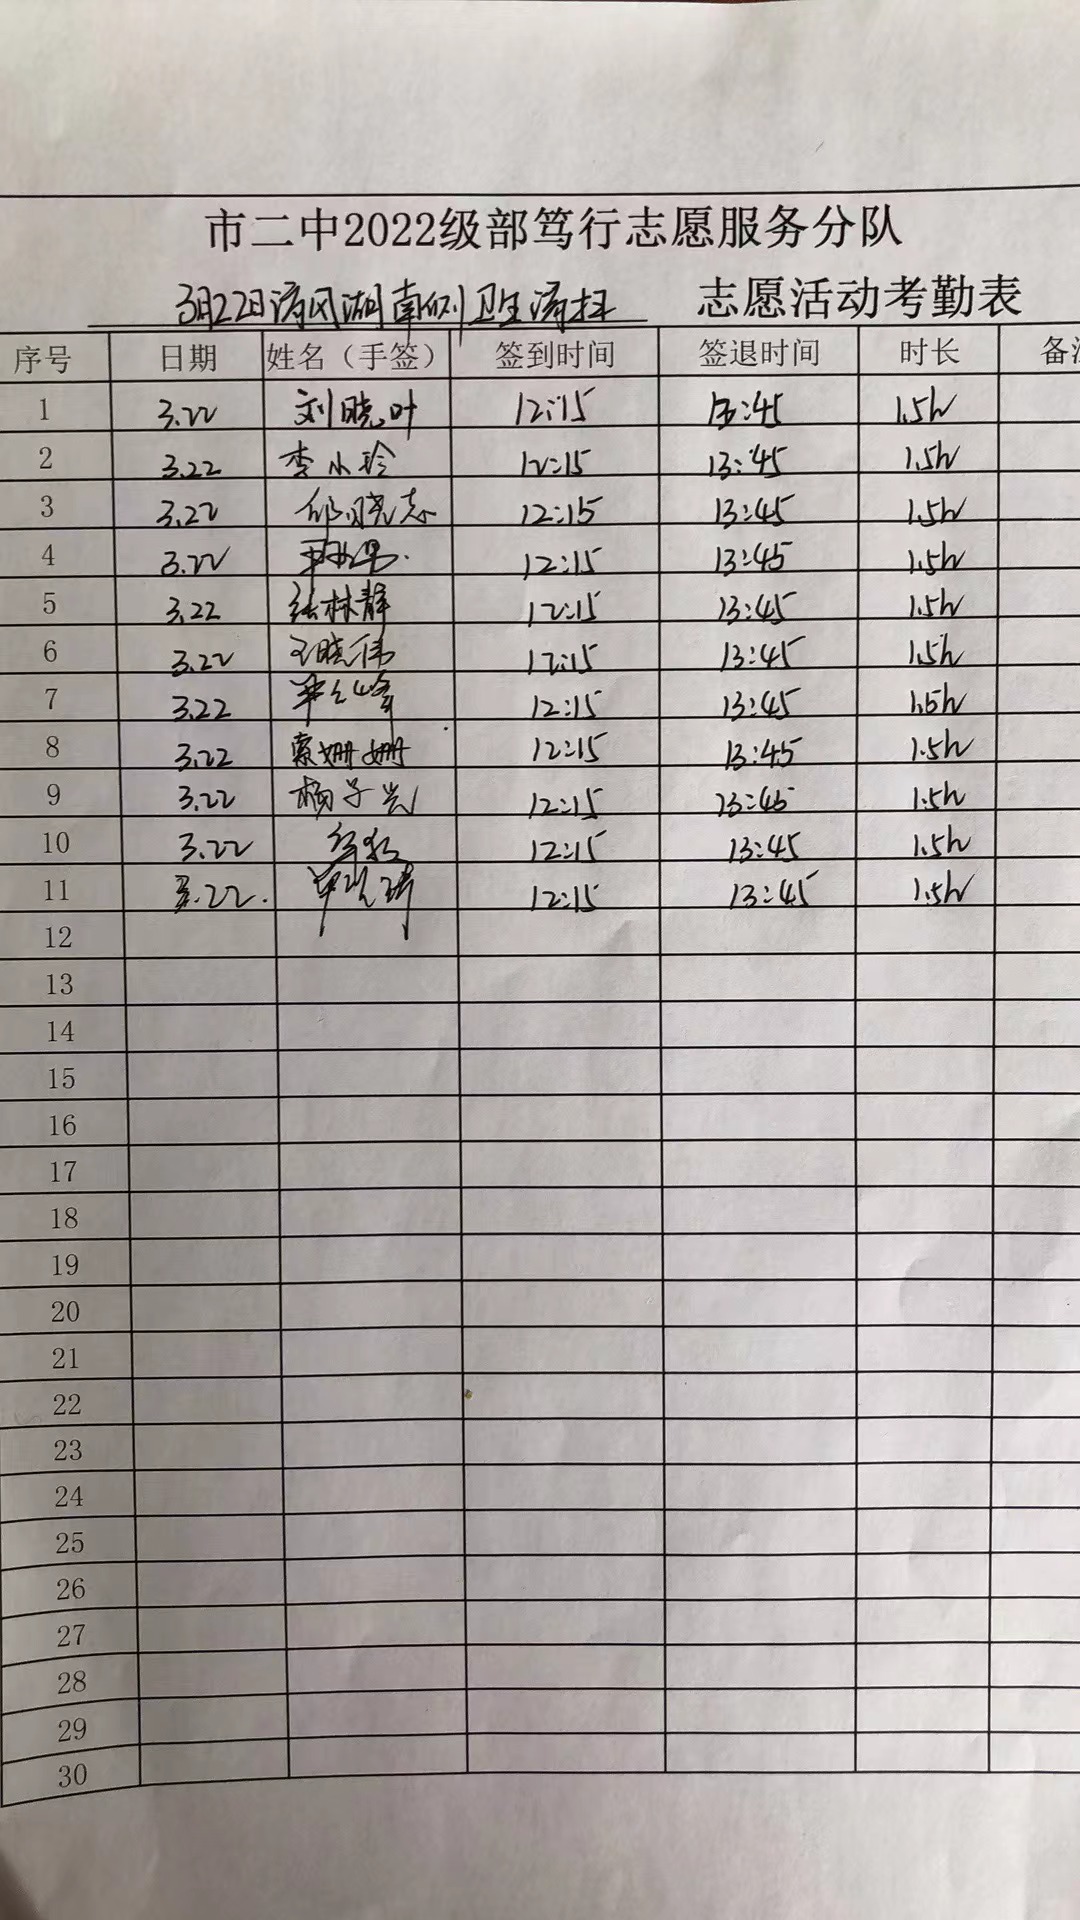 市二中2022级部笃行志愿服务分队
3月22日清风湖南侧卫生清扫 志愿活动考勤表
序号 日期 姓名（手签） 签到时间 签退时间 时长
1 3.22 刘晓叶 12:15 13:45 1.5h
2 3.22 李小玲 12:15 13:45 1.5h
3 3.22 邱晓志 12:15 13:45 1.5h
4 3.22 12:15 13:45 1.5h
5 3.22 张林静 12:15 13:45 1.5h
6 3.22 王晓伟 12:15 13:45 1.5h
7 3.22 12:15 13:45 1.5h
8 3.22 索姗姗 12:15 13:45 1.5h
9 3.22 杨子岩 12:15 13:45 1.5h
10 3.22 12:15 13:45 1.5h
11 3.22. 12:15 13:45 1.5h
12
13
14
15
16
17
18
19
20
21
22
23
24
25
26
27
28
29
30